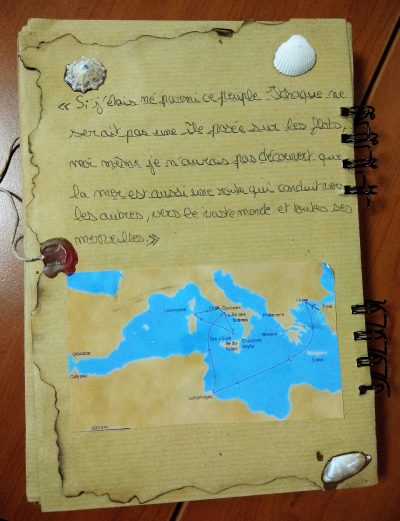 « Si j'étais né parmi ce peuple Ithaque ne
serait pas une île posée sur les flots,
moi même je n'aurais pas découvert que
la mer est aussi une route qui conduit vers
les autres, vers le vaste monde et toutes ses
merveilles. »
Lestrygons
Circé
Cyclopes
Île des
Sirènes
Phéaciens
Troie
Île d'Eole
Île du
Soleil
Charybde
Scylla
Ithaque
Gibraltar
Calypso
Crète
Lotophages